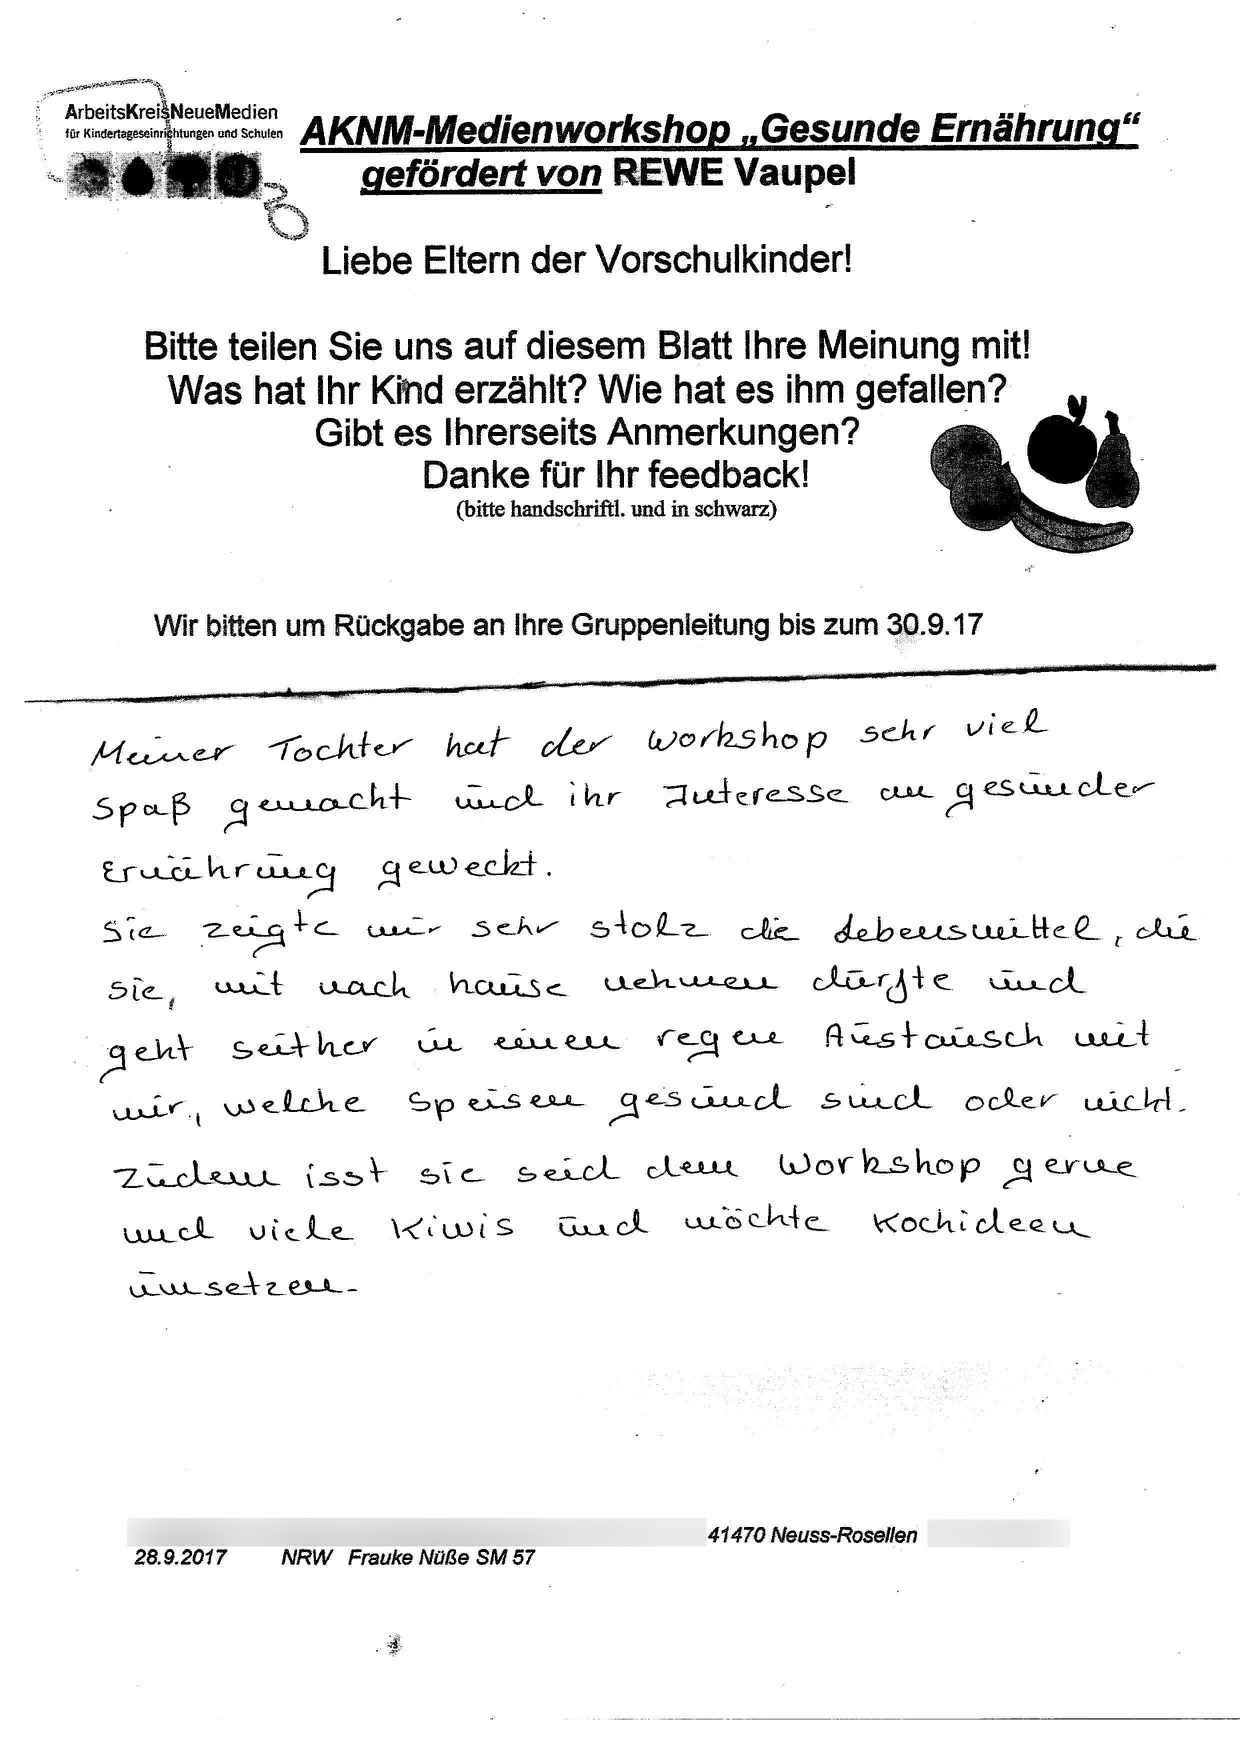 ArbeitsKreisNeueMedien
für Kindertageseinrichtungen und Schulen
AKNM-Medienworkshop „Gesunde Ernährung“
gefördert von REWE Vaupel
Liebe Eltern der Vorschulkinder!
Bitte teilen Sie uns auf diesem Blatt Ihre Meinung mit!
Was hat Ihr Kind erzählt? Wie hat es ihm gefallen?
Gibt es Ihrerseits Anmerkungen?
Danke für Ihr feedback!
(bitte handschriftl. und in schwarz)
Wir bitten um Rückgabe an Ihre Gruppenleitung bis zum 30.9.17
Meiner Tochter hat der Workshop sehr viel
Spaß gemacht und ihr Interesse an gesunder
Ernährung geweckt.
Sie zeigte mir sehr stolz die Lebensmittel, die
sie, mit nach hause nehmen durfte und
geht seither in einen regen Austausch mit
mir, welche Speisen gesund sind oder nicht.
Zudem isst sie seid dem Workshop gerne
und viele Kiwis und möchte Kochideen
umsetzen.
41470 Neuss-Rosellen
28.9.2017 NRW Frauke Nüße SM 57